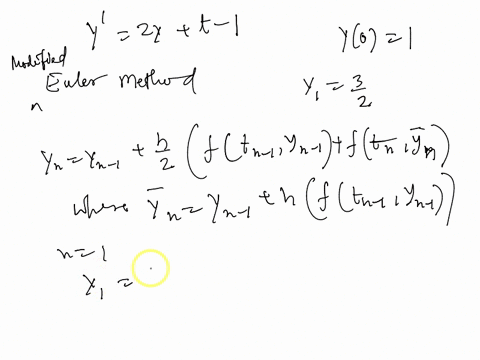 y' = 2x + t - 1
y(0) = 1
Modified
Euler Method
y₁ = 3/2
n
yₙ = yₙ₋₁ + h/2 (f(tₙ₋₁, yₙ₋₁) + f(tₙ, ȳₙ))
where ȳₙ = yₙ₋₁ + h (f(tₙ₋₁, yₙ₋₁))
n = 1
y₁ =